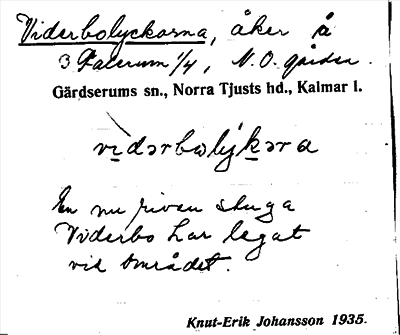 Viderbolyckorna, åker å
3 Falerum 1/4, N. O. gården.
Gärdserums sn., Norra Tjusts hd., Kalmar l.
vidərbωlykəra
En nu riven stuga
Viderbo har legat
vid området.
Knut-Erik Johansson 1935.